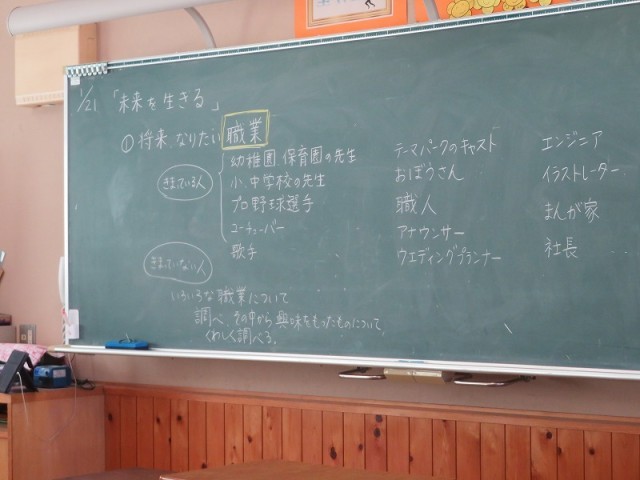 1/21 「未来を生きる」
① 将来、なりたい 職業
きまっている人
幼稚園 保育園の先生
小、中学校の先生
プロ野球選手
ユーチューバー
歌手
テーマパークのキャスト
おぼうさん
職人
アナウンサー
ウエディングプランナー
エンジニア
イラストレーター
まんが家
社長
きまっていない人
いろいろな職業について
調べ、その中から興味をもったものについて、
くわしく調べる。